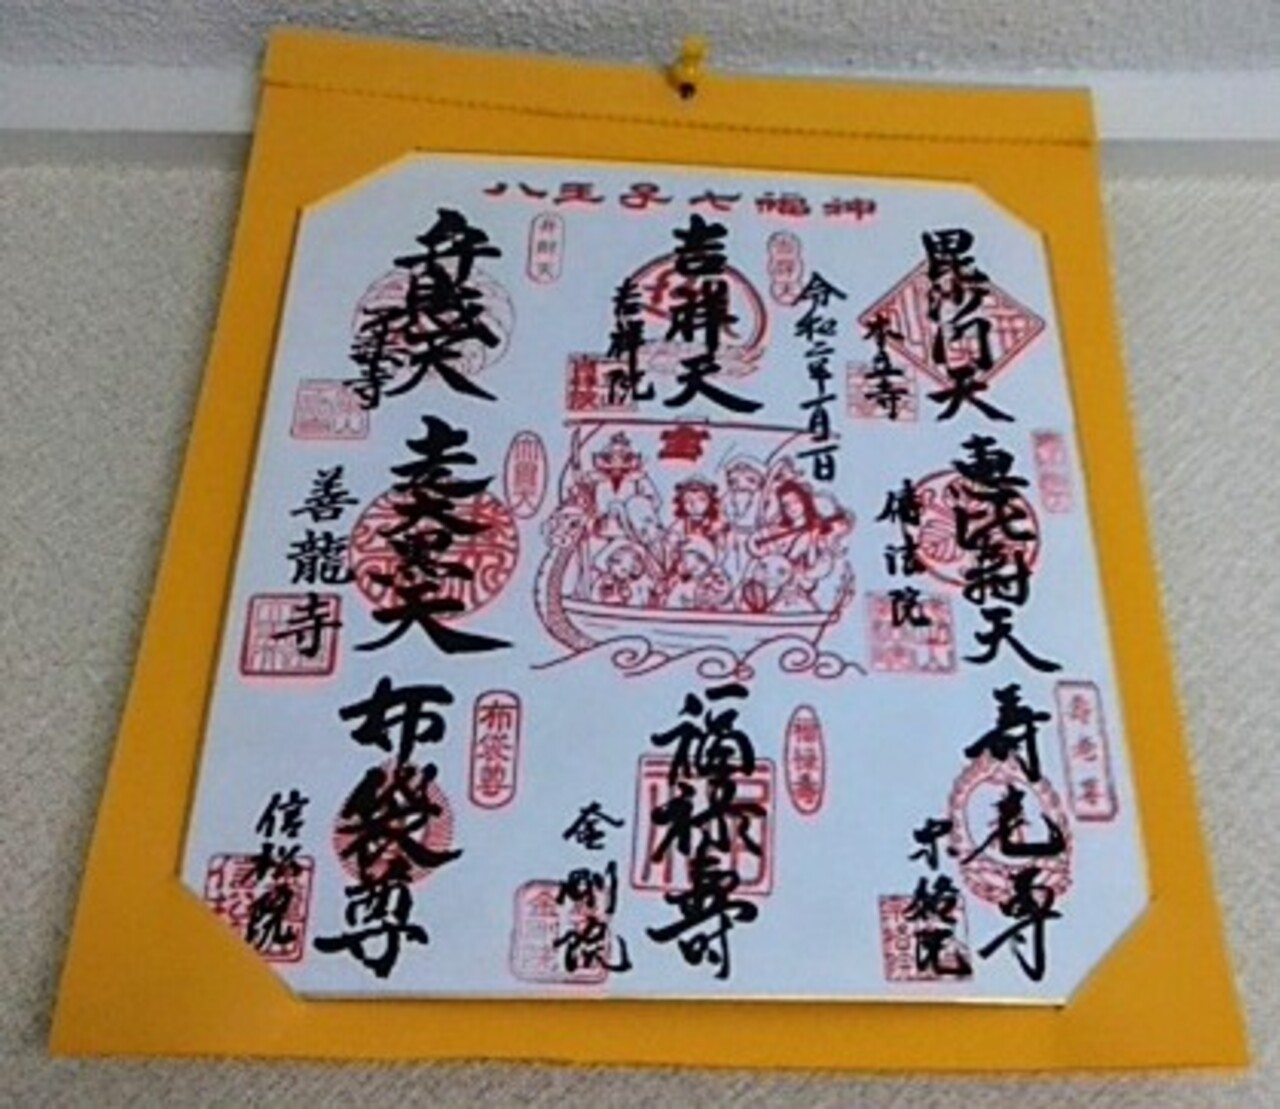 八王子七福神
毘沙門天
本立寺
令和二年一月二日
吉祥天
吉祥天
吉祥院
吉祥院
弁財天
弁財天
了法寺
恵比寿天
傳法院
宝
走大黒天
善龍寺
寿老尊
寿老尊
宗格院
宗格院
福禄寿
福禄寿
金剛院
布袋尊
布袋尊
信松院